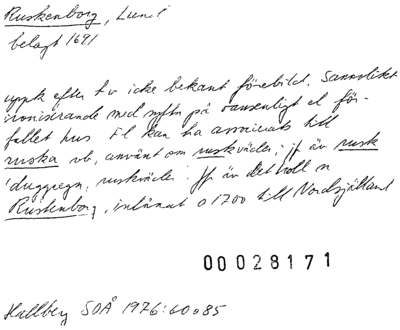 Ruskenborg, Lund
belagt 1691
uppk efter t v icke bekant förebild. Sannolikt
ironiserande med syftn på vansenligt el för-
fallet hus. F l kan ha associerats till
ruska vb, använt om ruskväder; jf äv rusk
'duggregn, ruskväder'. Jfr äv det holl n
Rustenborg, inlånat o 1700 till Nordsjälland
00028171
Hallberg SOÅ 1976:60 o 85